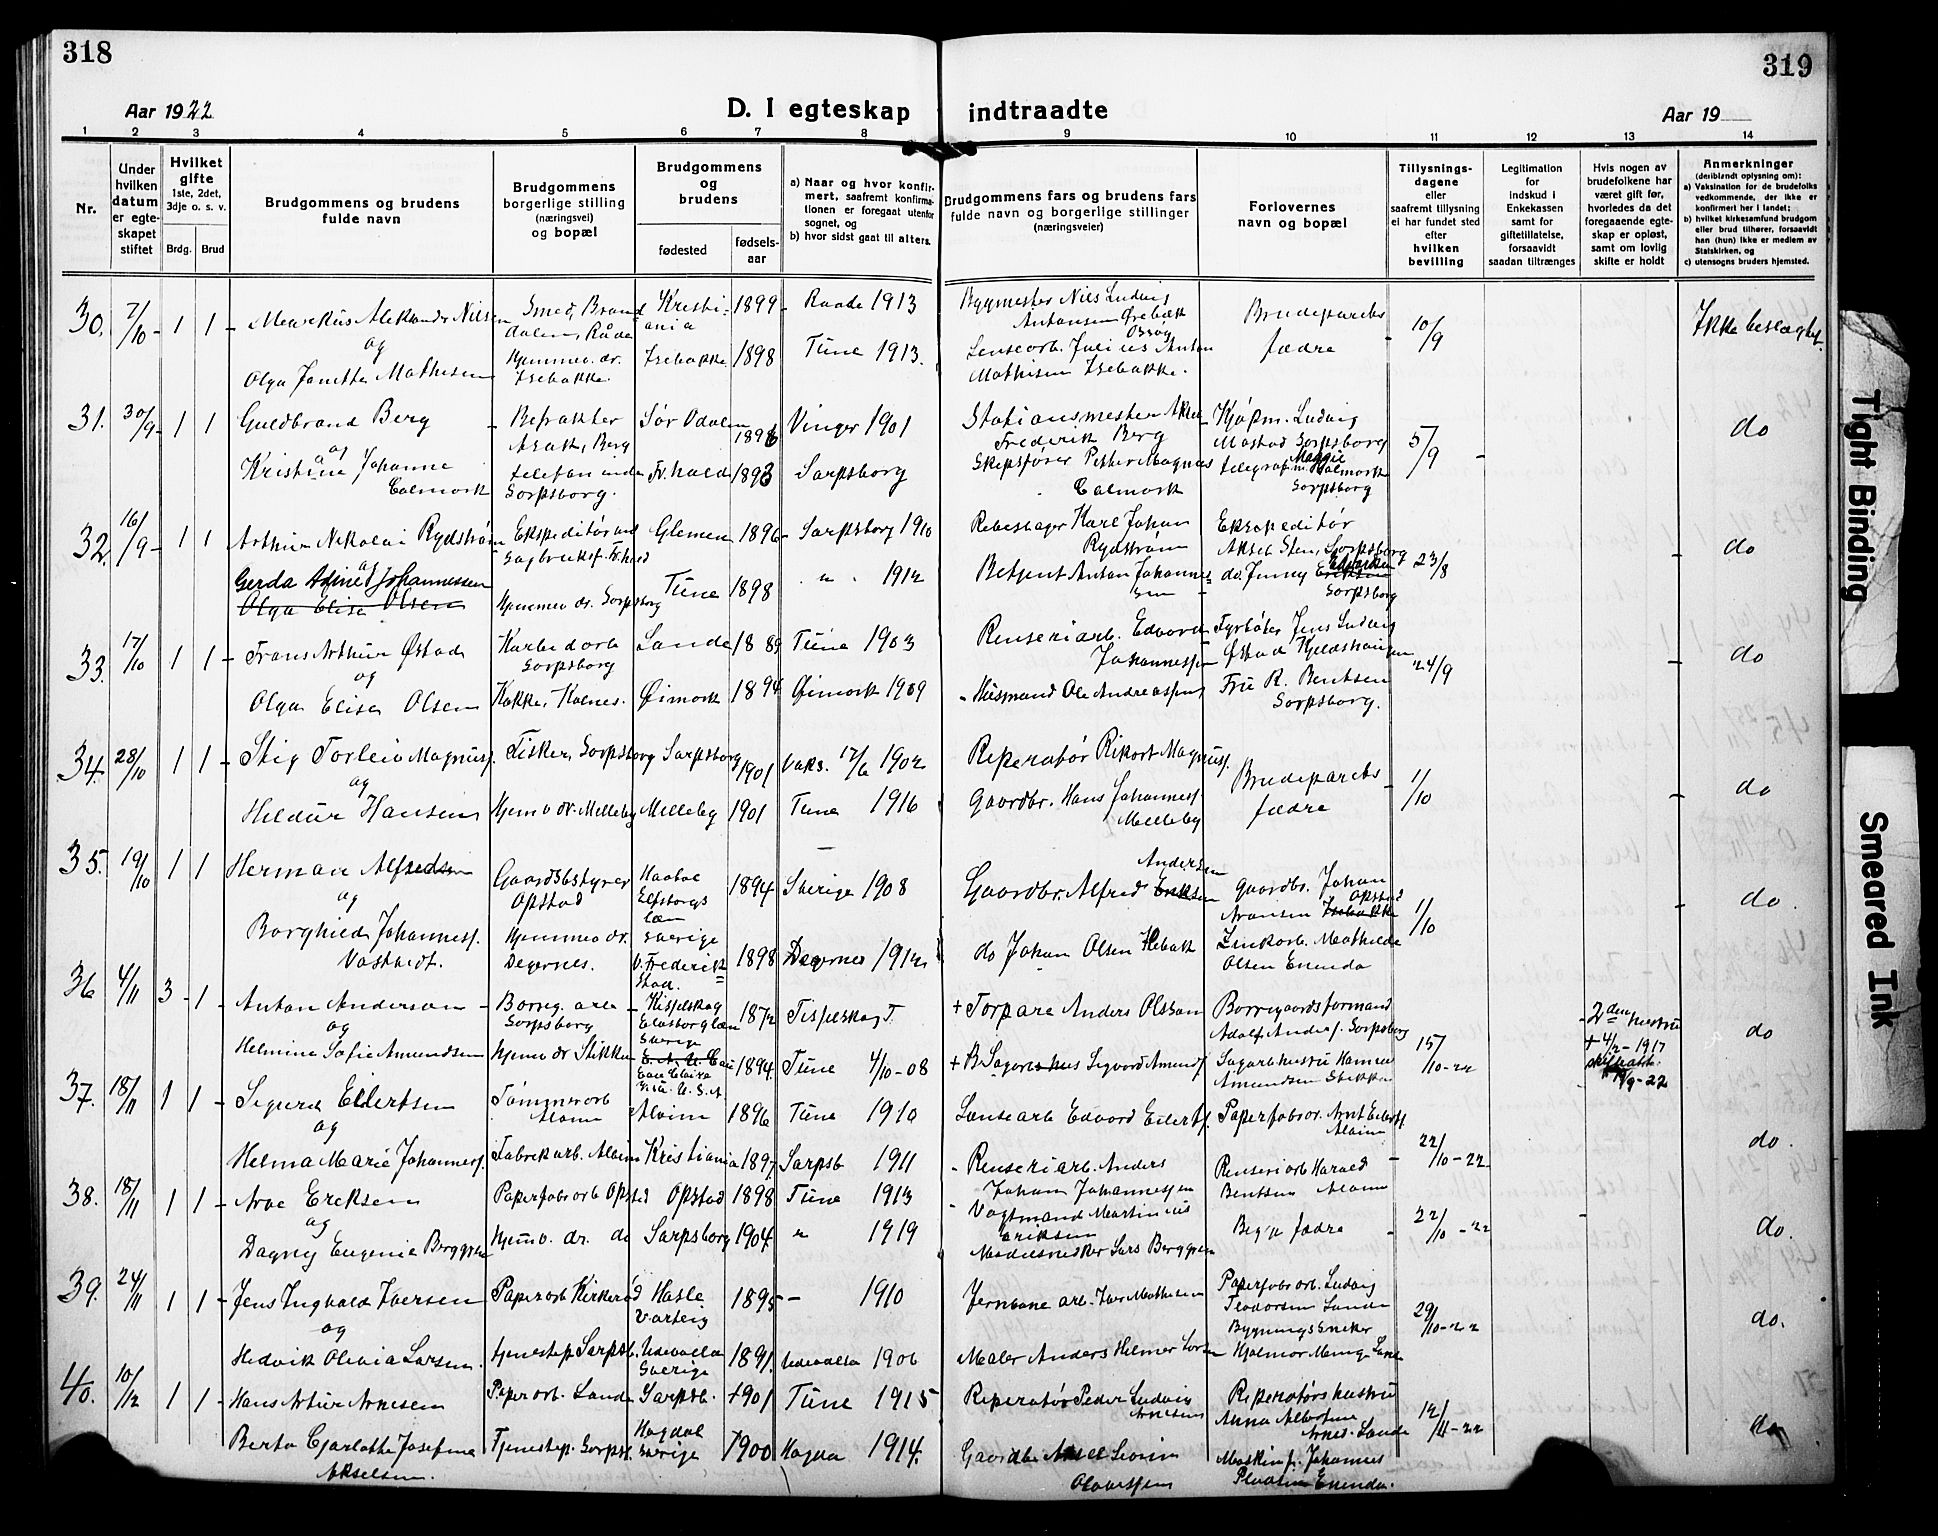 318
319
Aar 1922
D. I egteskap indtraadte
Aar 19
1 2 3 4 5 6 7 8 9 10 11 12 13 14
Nr.
Under hvilken datum er egteskapet stiftet
Hvilket gifte
1ste, 2det, 3dje o. s. v.
Brdg. Brud
Brudgommens og brudens fulde navn
Brudgommens borgerlige stilling (næringsvei) og bopæl
Brudgommens og brudens
fødested
fødselsaar
a) Naar og hvor konfirmert, saafremt konfirmationen er foregaat utenfor sognet, og
b) hvor sidst gaat til alters.
Brudgommens fars og brudens fars fulde navn og borgerlige stillinger (næringsveier)
Forlovernes navn og bopæl
Tillysningsdagene eller saafremt tillysning ei har fundet sted efter hvilken bevilling
Legitimation for indskud i Enkekassen samt for giftetillatelse, forsaavidt saadan tiltrænges
Hvis nogen av brudefolkene har været gift før, hvorledes da det foregaaende egteskap er opløst, samt om lovlig skifte er holdt
Anmerkninger
(deriblandt oplysning om):
a) Vaksination for de brudefolks vedkommende, der ikke er konfirmert her i landet;
b) hvilket kirkesamfund brudgom eller brud tilhører, forsaavidt han (hun) ikke er medlem av Statskirken, og
c) utensogns bruders hjemsted.
30. 7/10 1 1 Markus Aleksander Nilsen
og
Olga Janette Mathisen
Smed, Brandalen, Råde
Hjemmev. dr. Isebakke.
Kristiania 1899 Raade 1913
Isebakke 1898 Tune 1913.
Bygmester Nils Ludvig Antonsen
Lensearb. Julius Anton Mathisen Isebakke.
Brudeparets fædre
10/9
Ikke beslægtet.
31. 30/9 1 1 Guldbrand Berg
og
Kristine Johanne Calmork
Sør Odalen Vinger 1901
Fr.hald 1893 Sarpsborg
Sarpsborg.
Stationsmester Aksel Frederik Berg
Skipsfører Petter Magnus Calmork
Kjøpm. Ludvig Mostad Sarpsborg
Sarpsborg
5/9
do
32. 16/9 1 1 Arthur Nikolai Rydstrøm
og
Gerda Johannessen
Olga Elise Olsen
Glemen 1896 Sarpsborg 1910
Hjemmev. dr. Sarpsborg
Tune 1898 " 1912
Rebeslager Karl Johan Rydstrøm
Betjent Anton Johannessen
Ekspeditør Aksel Sten, Sarpsborg
do. Jenny Sarpsborg
23/8
do
33. 17/10 1 1 Frans Arthur Østad
og
Olga Elise Olsen
Karbidarb. Sarpsborg
Kokke, Kalnes.
Sande 1889 Tune 1903
Øimark 1894 Øimark 1909
Renseriarb. Edvard Johannessen
Husmand Ole Andreassen
Fyrbøter Jens Ludvig Østad
Fru R. Bentsen Sarpsborg.
24/9
do
34. 28/10 1 1 Stig Torleiv Magnuss.
og
Hildur Hansen
Fisker, Sarpsborg
Hjemv. dr. Melleby
Sarpsborg 1901 Vaks. 17/6 1902
Melleby 1901 Tune 1916
Reperatør Rikart Magnuss.
Gaardbr. Hans Johanness. Melleby
Brudeparets fædre
1/10
do
35. 19/10 1 1 Herman Alfredsen
og
Borghild Johanness. Vasthedt.
Gaardsbestyrer Opstad
Hjemmev. dr. Degernes.
Elfsborgs læn Sverige 1894 Sverige 1908
v. Frederikstad. 1898 Degernes 1912
Gaardbr. Alfred Andersen
do Johan Olsen
Gaardbr. Johan Aronsen Opstad
Zinkarb. Mathilde Olsen Enenda
1/10
do.
36 4/11 3 1 Anton Anderson
og
Helmine Sofie Amundsen
Borreg. arb. Sarpsborg
Hjemv. dr. Stikka
Elfsborglæn Sverige 1872
Eau Claire U.S.A. 1894 Tune 4/10-08
+ Torpare Anders Olsson
Borregaardsformand Adolf Anders. Sarpsborg
Amundsen Stikka
15/10-22
2den hustru + 4/2-1917
do
37. 18/11 1 1 Sigurd Eilertsen
og
Helma Marie Johanness.
Tømmerarb. Alvim
Fabrikarb. Alvim
Alvim 1896 Tune 1910
Kristiania 1897 Sarpsb. 1911
Lensearb. Edvard Eilerts.
Renseriarb. Anders Johan Johannessen
Paperfabr.ar. Arnt Eilerts. Alvim
Renseriarb. Harald Bentsen Alvim
22/10-22
do.
38. 18/11 1 1 Arve Eriksen
og
Dagny Eugenie Berggren
Paperfabr.arb. Opstad
Hjemv. dr. do
Opstad 1898 Tune 1913
Sarpsborg 1904 " 1919
Vagtmand Martinius Eriksen
Modelsnekker Lars Berggren
Begges fædre
22/10-22
do.
39. 24/11 1 1 Jens Ingvald Iversen
og
Hedvik Olivia Larsen.
Paperarb.
Tjenestep. Sarpsb.
Hasle Varteig 1895 - 1910
Uddevalla Sverige 1891. Uddevalla 1906
Jernbanearb. Iver Mathisen
Maler Anders Helmer Larsen
Paperfabr.arb. Ludvig Teodorsen Sande
Bygningssneker Hjalmar
29/10-22
do.
40. 10/12 1 1 Hans Artur Arnesen
Berta Charlotte Josefine Akselsen.
Paperarb. Sande
Tjenestep. Sarpsb.
Sarpsb. 1901 Tune 1915
Sverige 1900 1914.
Reperatør Peder Ludvig Arnesen
Reperatørs hustru Anna Albertine Arnes. Sande
Maskinf. Johannes
12/11-22
do
Tight Binding
Smeared Ink